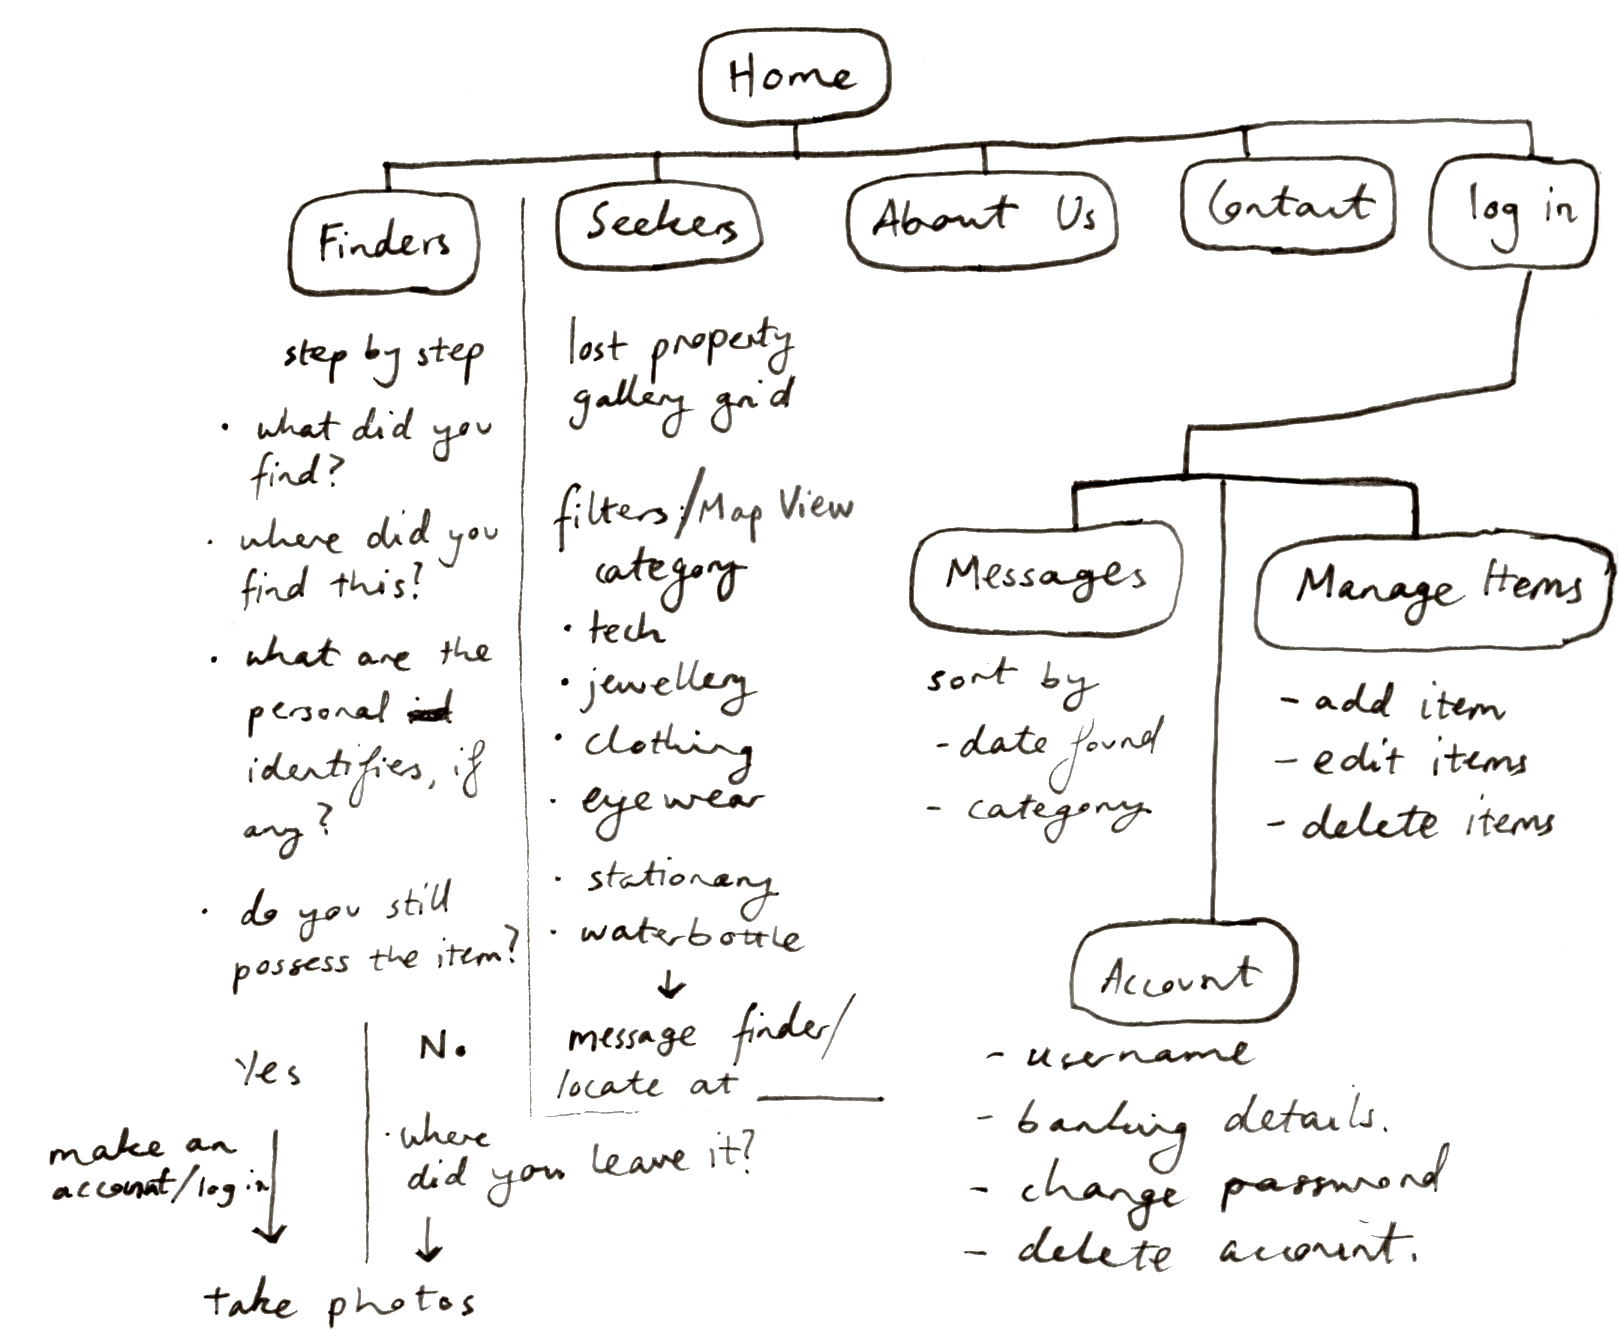 Home
Finders
Seekers
About Us
Contact
log in
step by step
• what did you
find?
• where did you
find this?
• what are the
personal
identifies, if
any?
• do you still
possess the item?
Yes
No.
make an
account/log in
• where
did you leave it?
take photos
lost property
gallery grid
filters:/Map View
category
• tech
• jewellery
• clothing
• eyewear
• stationary
• waterbottle
message finder/
locate at ______
Messages
sort by
- date found
- category
Manage Items
- add item
- edit items
- delete items
Account
- username
- banking details.
- change password
- delete account.